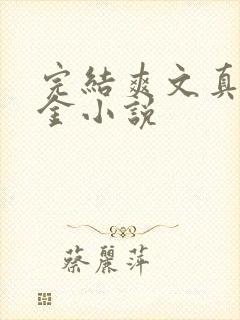 完結爽文真
金小說
蔡麗萍